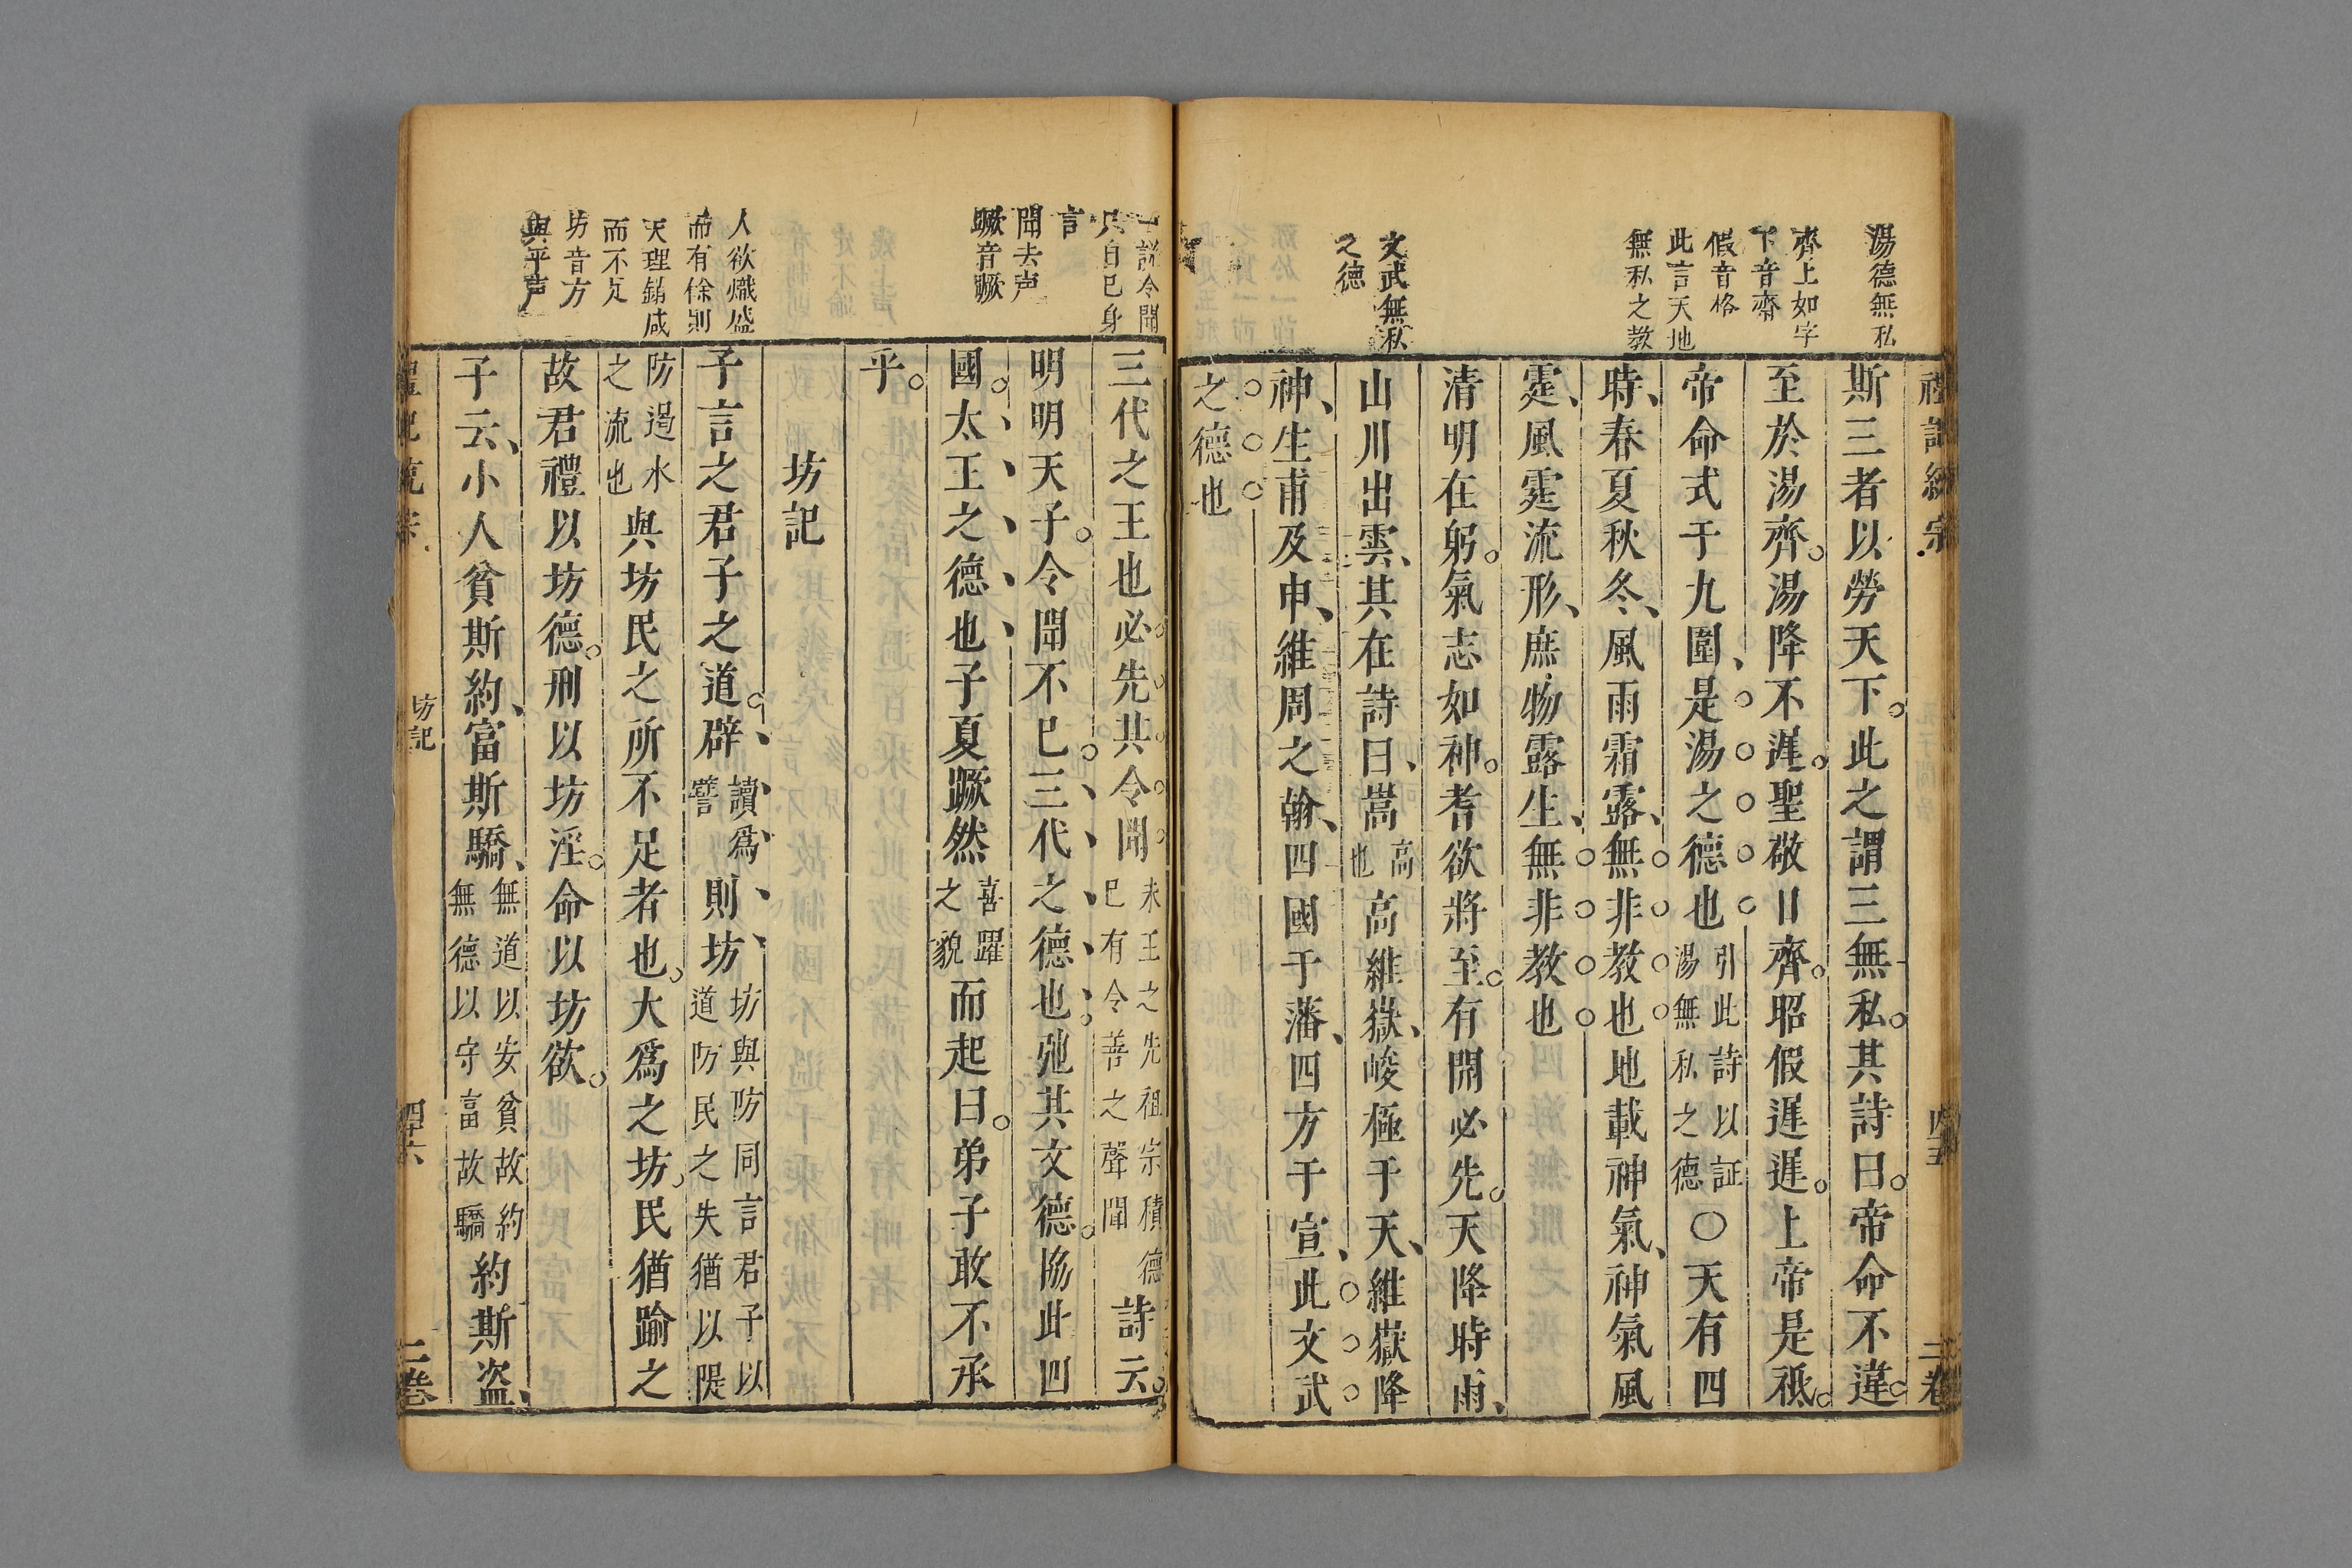 湯德無私
齊上如字
下音齋
假音格
此言天地
無私之教
文武無私
之德
斯三者以勞天下。此之謂三無私。其詩曰。帝命不違。
至於湯齊。湯降不遲。聖敬日齊。昭假遲遲。上帝是祗。
帝命式于九圍、是湯之德也引此詩以証湯無私之德○天有四
時、春夏秋冬、風雨霜露、無非教也地載神氣、神氣風
霆、風霆流形、庶物露生、無非教也
清明在躬。氣志如神。耆欲將至。有開必先。天降時雨、
山川出雲、其在詩曰、嵩高也高維嶽、峻極于天、維嶽降
神、生甫及申、維周之翰、四國于藩、四方于宣、此文武
之德也
四五
一說令聞
只自已身
言
聞去声
蹶音蹶
人欲熾盛
而有餘則
天理銷咸
而不足
坊音方
與平声
三代之王也必先其令聞未王之先祖宗積德已有令善之聲聞詩云。
明明天子。令聞不已。三代之德也。弛其文德。協此四
國。太王之德也子夏蹶然喜躍之貌而起曰。弟子敢不承
乎。
坊記
子言之君子之道。辟、讀爲譬則坊坊與防同言君子以道防民之失猶以隄
防遏水之流也與坊民之所不足者也。大爲之坊。民猶踰之
故君禮以坊德。刑以坊淫。命以坊欲。
子云、小人貧斯約、富斯驕、無道以安貧故約無德以守富故驕約斯盗、
坊記